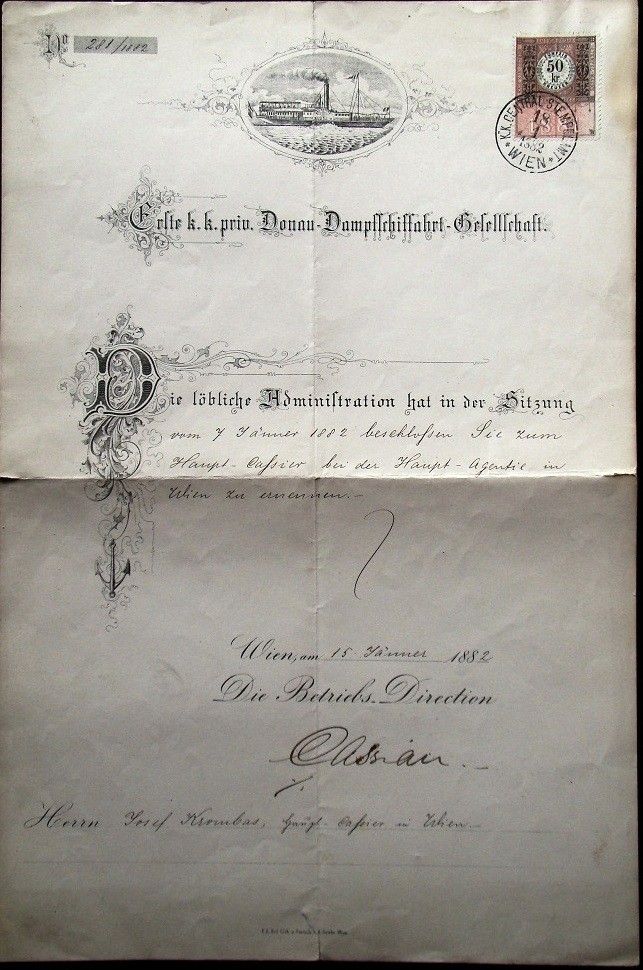 No 281/1882
50
kr
K.K. CENTRAL STEMPELAMT
18
1
1882
* WIEN *
Erste k. k. priv. Donau-Dampfschiffahrt-Gesellschaft.
Die löbliche Administration hat in der Sitzung
vom 7 Jänner 1882 beschlossen Sie zum
Haupt-Cassier bei der Haupt-Agentie in
Wien zu ernennen.-
Wien, am 15 Jänner 1882
Die Betriebs-Direction
Cassian.
Herrn Josef Krombas, Haupt-Cassier in Wien.